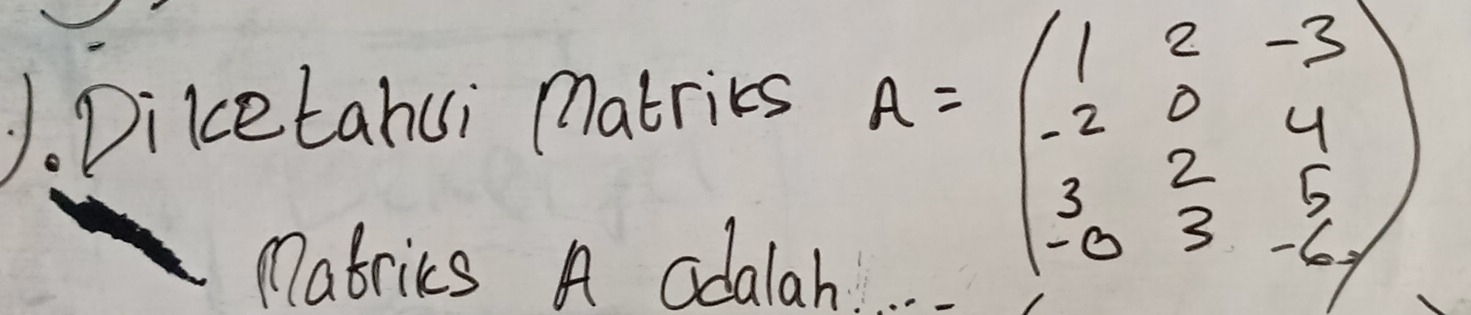 ). Diketahui Matriks A = ( 1 2 -3
-2 0 4
3 2 5
-0 3 -6 )
Matriks A adalah....